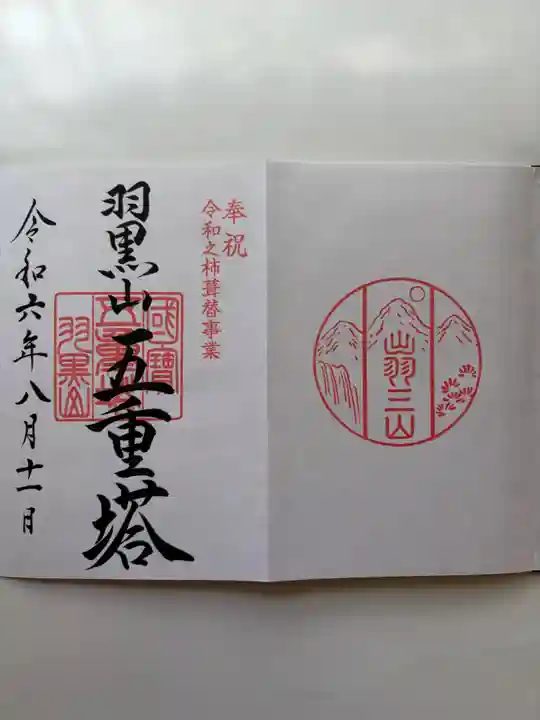 山羽三山
奉祝
令和之杮葺替事業
羽黒山五重塔
國寶
五重塔
羽黒山
令和六年八月十一日